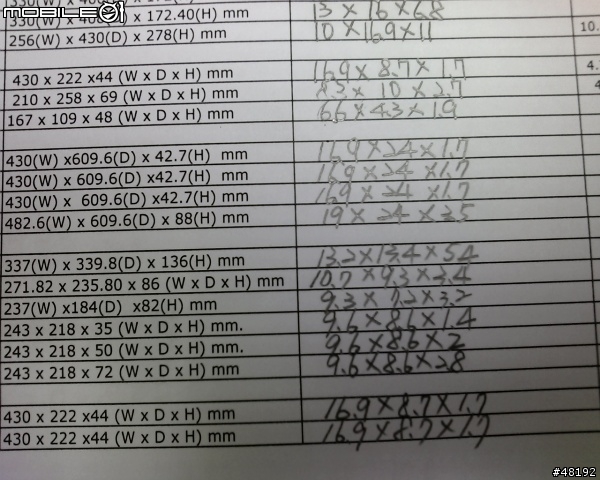 MOBILE01
330(W) x 172.40(H) mm 13 x 16 x 6.8
256(W) x 430(D) x 278(H) mm 10 x 16.9 x 11
10.
430 x 222 x44 (W x D x H) mm 16.9 x 8.7 x 1.7
4.
210 x 258 x 69 (W x D x H) mm x 10 x 2.7
4
167 x 109 x 48 (W x D x H) mm 6.6 x 4.3 x 1.9
430(W) x609.6(D) x 42.7(H) mm 16.9 x 24 x 1.7
430(W) x 609.6(D) x 42.7(H) mm 16.9 x 24 x 1.7
430(W) x 609.6(D) x42.7(H) mm 16.9 x 24 x 1.7
482.6(W) x 609.6(D) x 88(H) mm 19 x 24 x 3.5
337(W) x 339.8(D) x 136(H) mm 13.2 x 13.4 x 5.4
271.82 x 235.80 x 86 (W x D x H) mm 10.7 x 9.3 x 3.4
237(W) x184(D) x82(H) mm 9.3 x 7.2 x 3.2
243 x 218 x 35 (W x D x H) mm. 9.6 x 8.6 x 1.4
243 x 218 x 50 (W x D x H) mm. 9.6 x 8.6 x 2
243 x 218 x 72 (W x D x H) mm 9.6 x 8.6 x 2.8
430 x 222 x44 (W x D x H) mm 16.9 x 8.7 x 1.7
430 x 222 x44 (W x D x H) mm 16.9 x 8.7 x 1.7
#48192